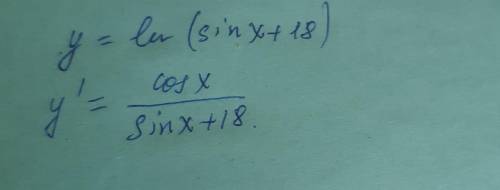 y = ln (sin x + 18)
y' = cos x / sin x + 18.